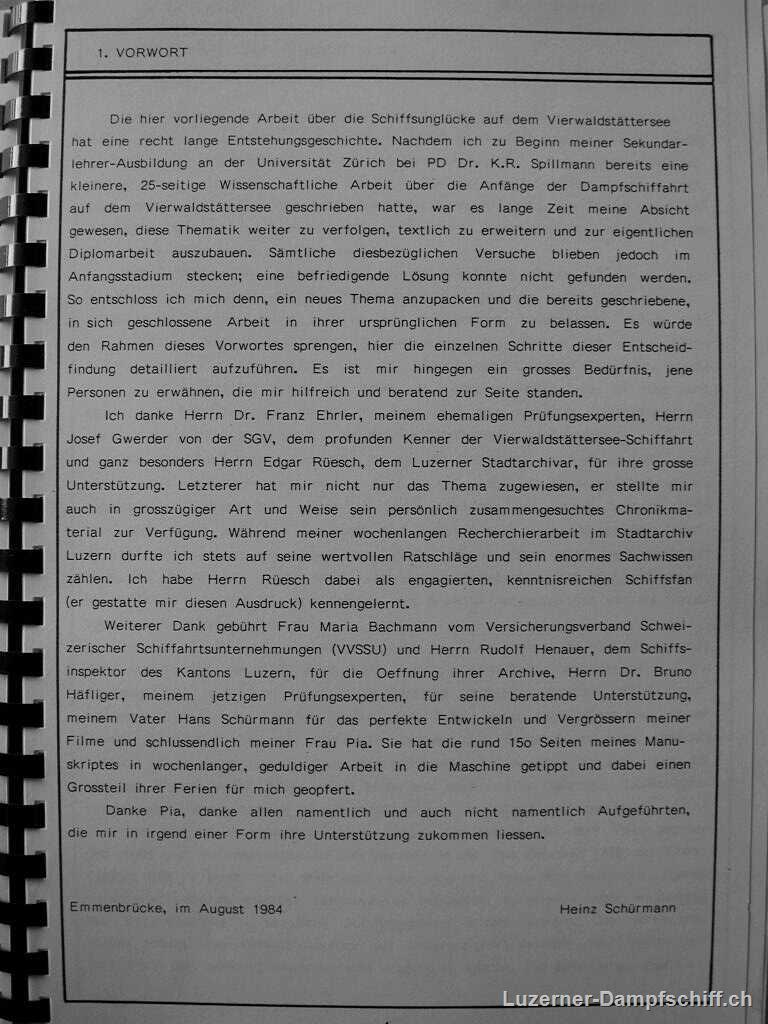 1. VORWORT
Die hier vorliegende Arbeit über die Schiffsunglücke auf dem Vierwaldstättersee
hat eine recht lange Entstehungsgeschichte. Nachdem ich zu Beginn meiner Sekundar-
lehrer-Ausbildung an der Universität Zürich bei PD Dr. K.R. Spillmann bereits eine
kleinere, 25-seitige Wissenschaftliche Arbeit über die Anfänge der Dampfschiffahrt
auf dem Vierwaldstättersee geschrieben hatte, war es lange Zeit meine Absicht
gewesen, diese Thematik weiter zu verfolgen, textlich zu erweitern und zur eigentlichen
Diplomarbeit auszubauen. Sämtliche diesbezüglichen Versuche blieben jedoch im
Anfangsstadium stecken; eine befriedigende Lösung konnte nicht gefunden werden.
So entschloss ich mich denn, ein neues Thema anzupacken und die bereits geschriebene,
in sich geschlossene Arbeit in ihrer ursprünglichen Form zu belassen. Es würde
den Rahmen dieses Vorwortes sprengen, hier die einzelnen Schritte dieser Entscheid-
findung detailliert aufzuführen. Es ist mir hingegen ein grosses Bedürfnis, jene
Personen zu erwähnen, die mir hilfreich und beratend zur Seite standen.
Ich danke Herrn Dr. Franz Ehrler, meinem ehemaligen Prüfungsexperten, Herrn
Josef Gwerder von der SGV, dem profunden Kenner der Vierwaldstättersee-Schiffahrt
und ganz besonders Herrn Edgar Rüesch, dem Luzerner Stadtarchivar, für ihre grosse
Unterstützung. Letzterer hat mir nicht nur das Thema zugewiesen, er stellte mir
auch in grosszügiger Art und Weise sein persönlich zusammengesuchtes Chronikma-
terial zur Verfügung. Während meiner wochenlangen Recherchierarbeit im Stadtarchiv
Luzern durfte ich stets auf seine wertvollen Ratschläge und sein enormes Sachwissen
zählen. Ich habe Herrn Rüesch dabei als engagierten, kenntnisreichen Schiffsfan
(er gestatte mir diesen Ausdruck) kennengelernt.
Weiterer Dank gebührt Frau Maria Bachmann vom Versicherungsverband Schwei-
zerischer Schiffahrtsunternehmungen (VVSSU) und Herrn Rudolf Henauer, dem Schiffs-
inspektor des Kantons Luzern, für die Oeffnung ihrer Archive, Herrn Dr. Bruno
Häfliger, meinem jetzigen Prüfungsexperten, für seine beratende Unterstützung,
meinem Vater Hans Schürmann für das perfekte Entwickeln und Vergrössern meiner
Filme und schlussendlich meiner Frau Pia. Sie hat die rund 15o Seiten meines Manu-
skriptes in wochenlanger, geduldiger Arbeit in die Maschine getippt und dabei einen
Grossteil ihrer Ferien für mich geopfert.
Danke Pia, danke allen namentlich und auch nicht namentlich Aufgeführten,
die mir in irgend einer Form ihre Unterstützung zukommen liessen.
Emmenbrücke, im August 1984 Heinz Schürmann
Luzerner-Dampfschiff.ch